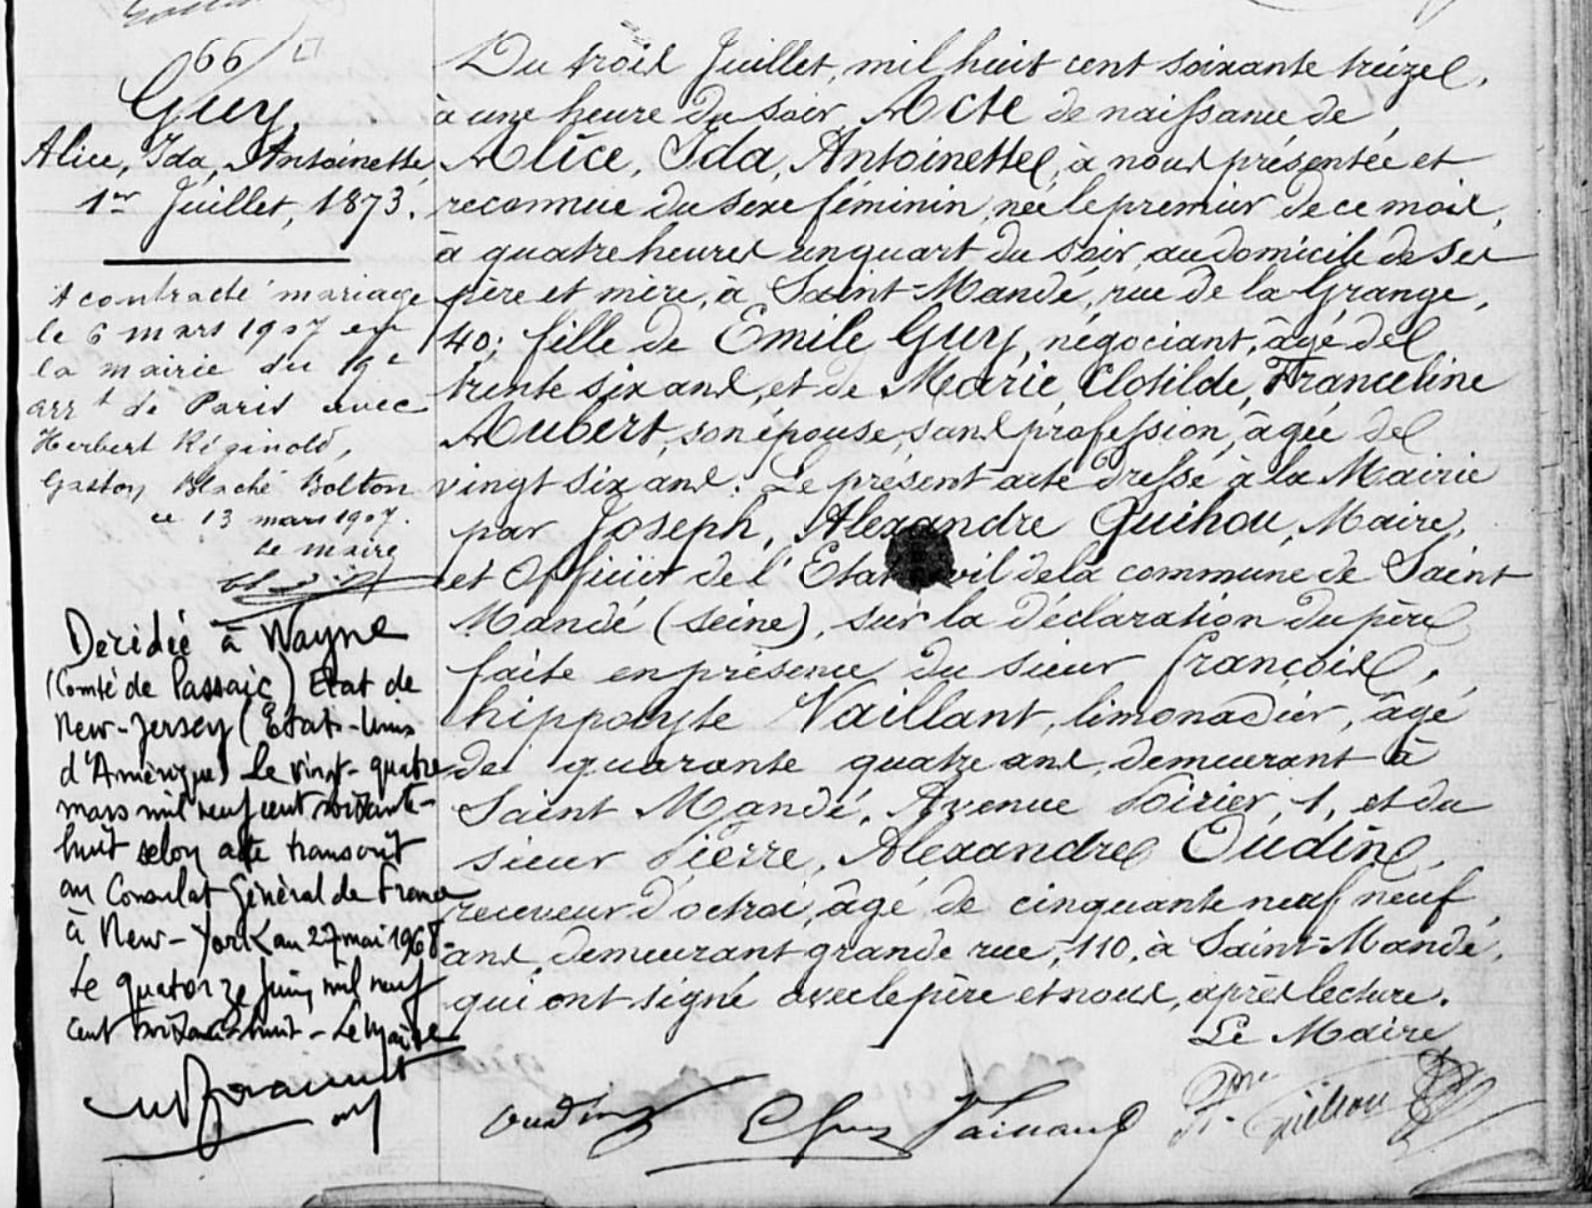 66
Guy
Alice, Ida, Antoinette,
1er Juillet, 1873.
A contracté mariage
le 6 mars 1907 en
la mairie du 19e
arrt de Paris avec
Herbert Réginold,
Gaston Blaché Bolton
ce 13 mars 1907.
Le maire
Décidée à Wayne
(Comté de Passaic) Etat de
New-Jersey (Etats-Unis
d'Amérique) le vingt-quatre
mars mil neuf cent soixante-
huit selon acte transcrit
au Consulat Général de France
à New-York au 27 mai 1968-
Le quatorze Juin mil neuf
cent soixante huit - Le Maire
Du trois Juillet, mil huit cent soixante treize,
à une heure du soir Acte de naissance de
Alice, Ida, Antoinette, à nous présentée et
reconnue du sexe féminin, née le premier de ce mois,
à quatre heures un quart du soir, au domicile de ses
père et mère, à Saint-Mandé, rue de la Grange,
40; fille de Emile Guy, négociant, âgé de
trente six ans, et de Marie, Clotilde, Franceline
Aubert, son épouse, sans profession, âgée de
vingt six ans. Le présent acte dressé à la Mairie
par Joseph, Alexandre Quihou, Maire,
et Officier de l'Etat vil de la commune de Saint
Mandé (Seine), sur la déclaration du père
faite en présence du sieur François,
hippolyte Vaillant, limonadier, âgé
de quarante quatre ans, demeurant à
Saint Mandé, Avenue Poirier, 1, et du
sieur Pierre, Alexandre Oudin,
receveur d'octroi, âgé de cinquante neuf neuf
ans, demeurant grande rue, 110, à Saint-Mandé,
qui ont signé avec le père et nous, après lecture.
Le Maire
Oudin E Guy Vaillant Quihou